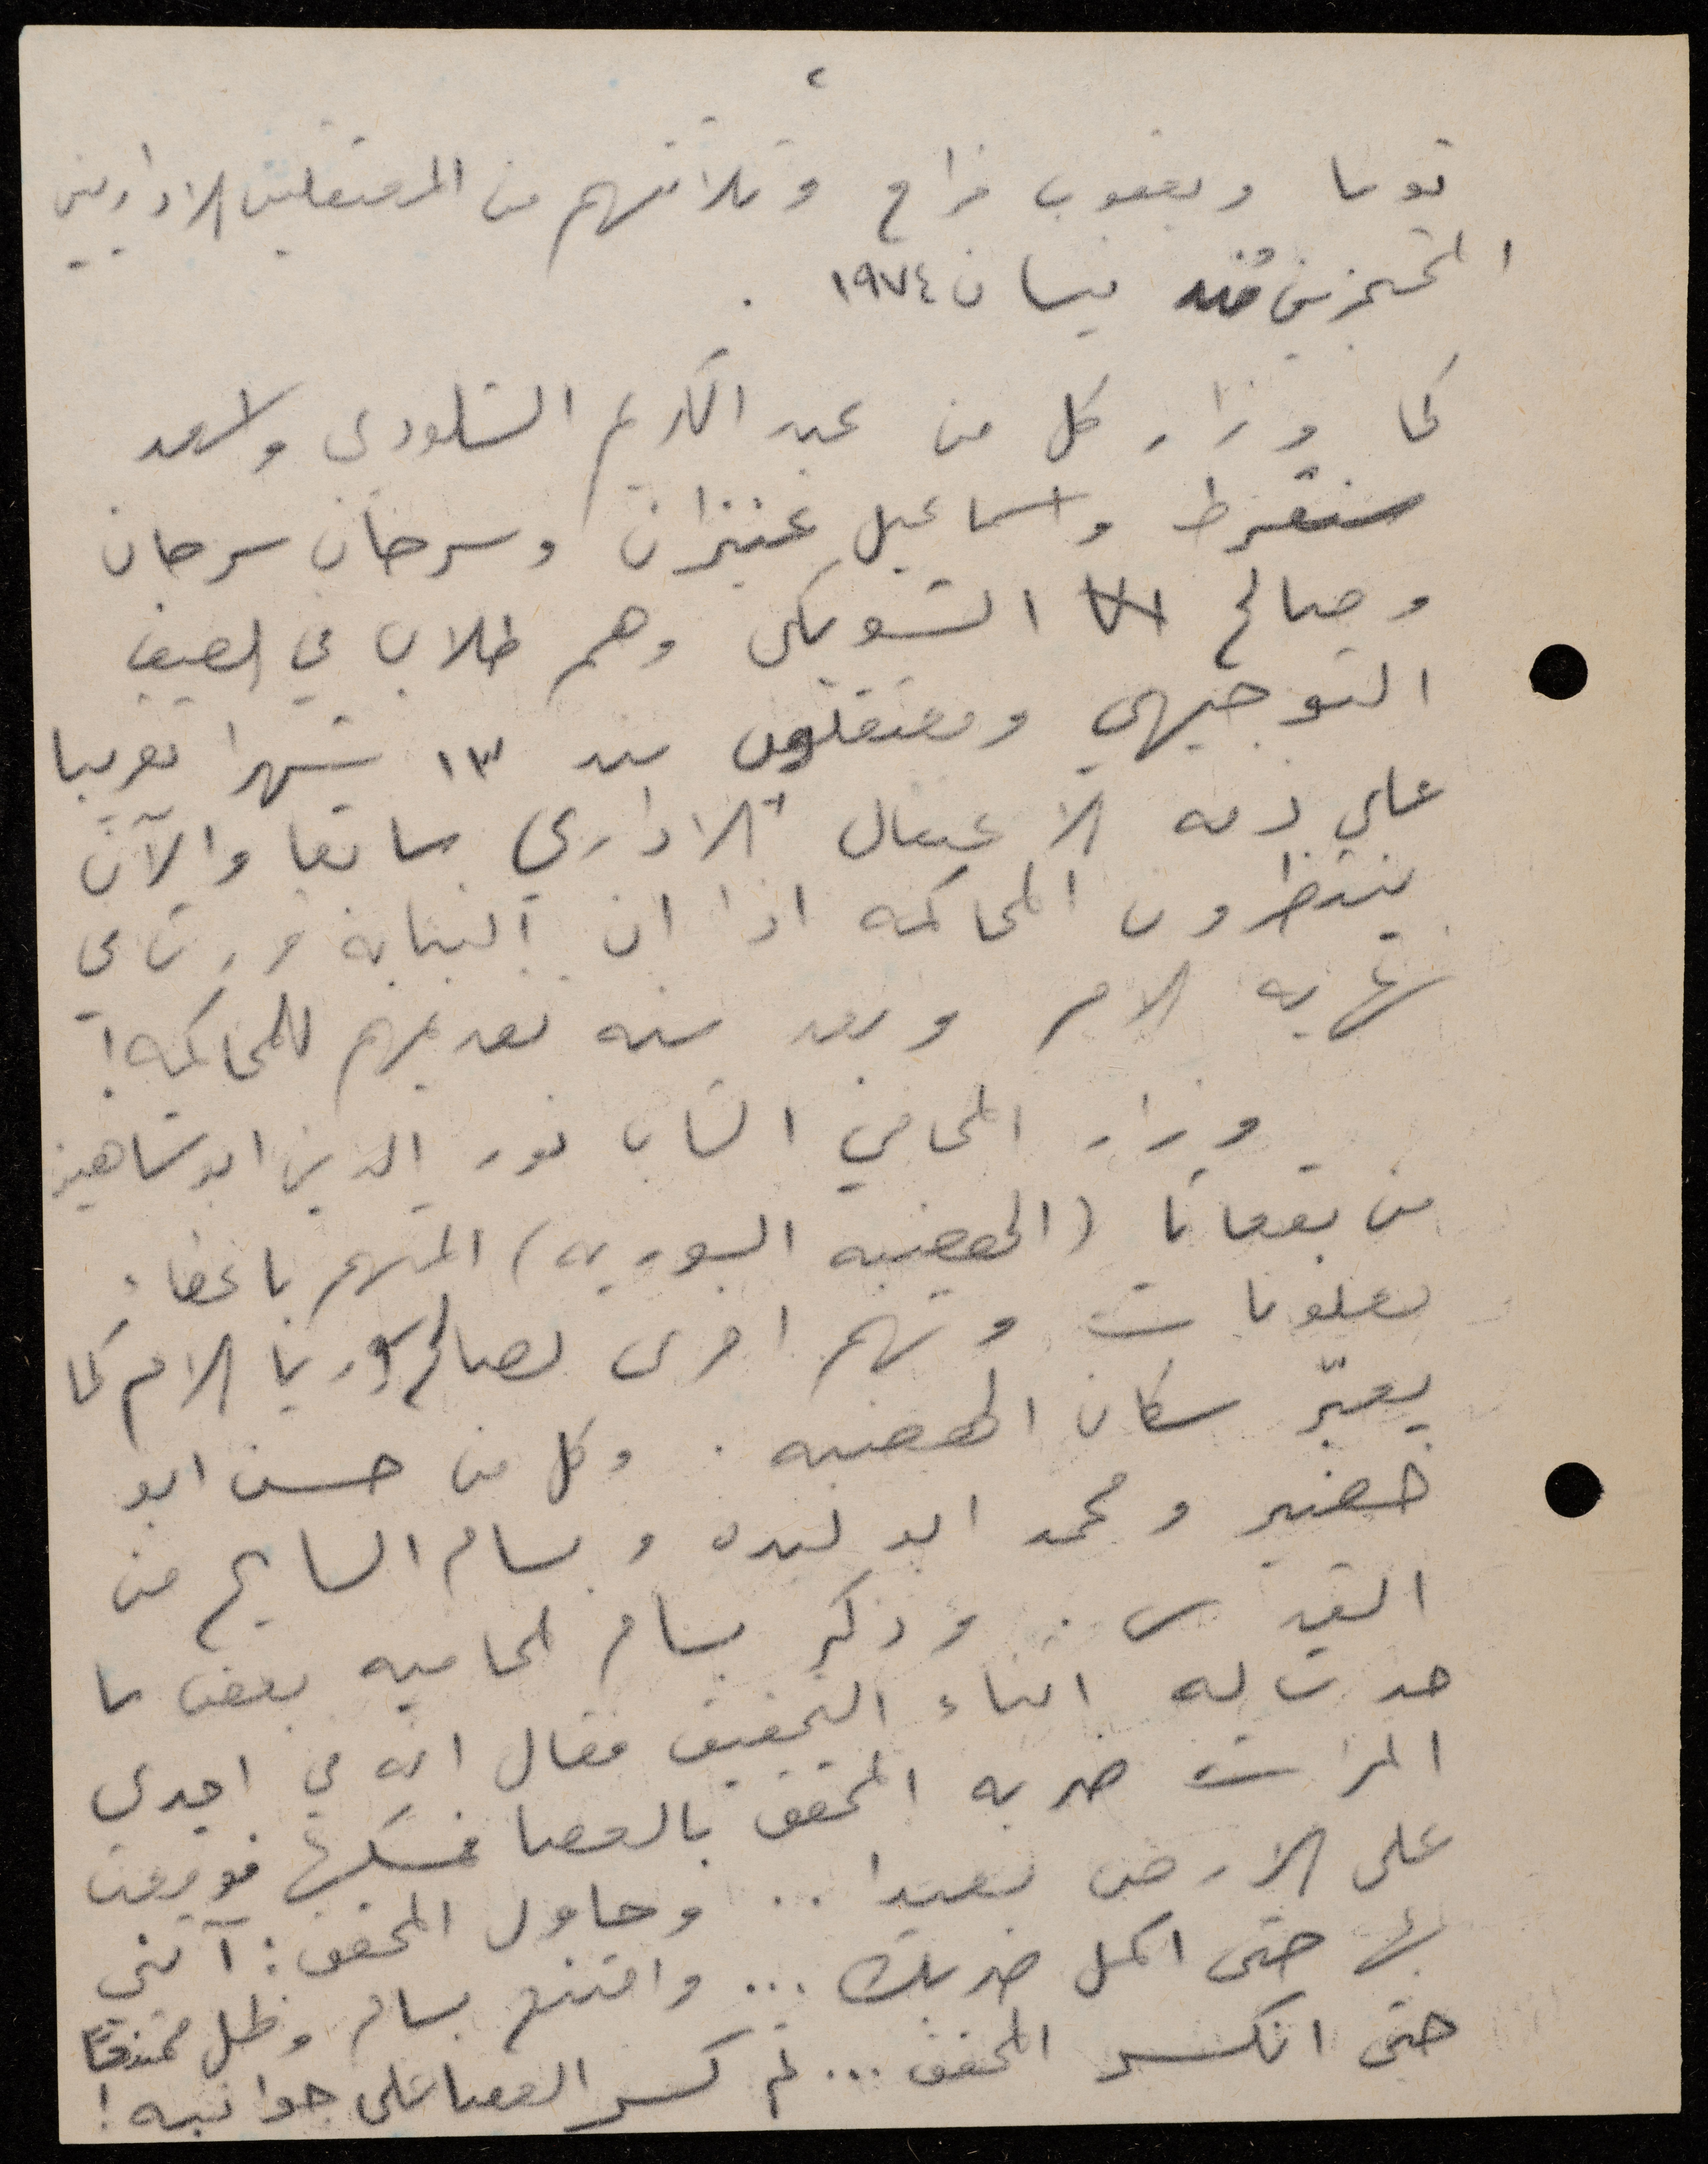 ٢
توما ويعقوب فراح وثلاثتهم من المعتقلين الاداريين
المحتجزين منذ نيسان ١٩٧٤ .
كما وزار كل من عبد الكريم الشلودي واسعد
سنقرط واسماعيل عنيزان وسرحان سرحان
وصالح الشويكي وهم طلاب في الصف
التوجيهي ومعتقلون منذ ١٣ شهرا تقريبا
على ذمه الاعتقال الاداري سابقا والآن
ينتظرون المحاكمه اذا ان النيابة قررت في
نهايه الامر وبعد سنه تقديمهم للمحاكمه!
وزار المحامي الشاب نور الدين ابو شاهين
من بقعاثا (الهضبه السوريه) المتهم باعطاء
معلومات وتهم اخرى لصالح سوريا الام كما
يعبّر سكان الهضبه . وكل من حسن ابو
خضير ومحمد ابو لبده وبسام السايح من
القدس . وذكر بسام لمحاميه بعض ما
حدث له اثناء التحقيق فقال انه في احدى
المرات ضربه المحقق بالعصا فمسكها فوقعت
على الارض بعيدا .. وحاول المحقق : آتني
بها حتى اكمل ضربك ... وامتنع بسام وظل ممتنعًا
حتى انكسر المحقق ... ثم كسر العصا على جوانبه !